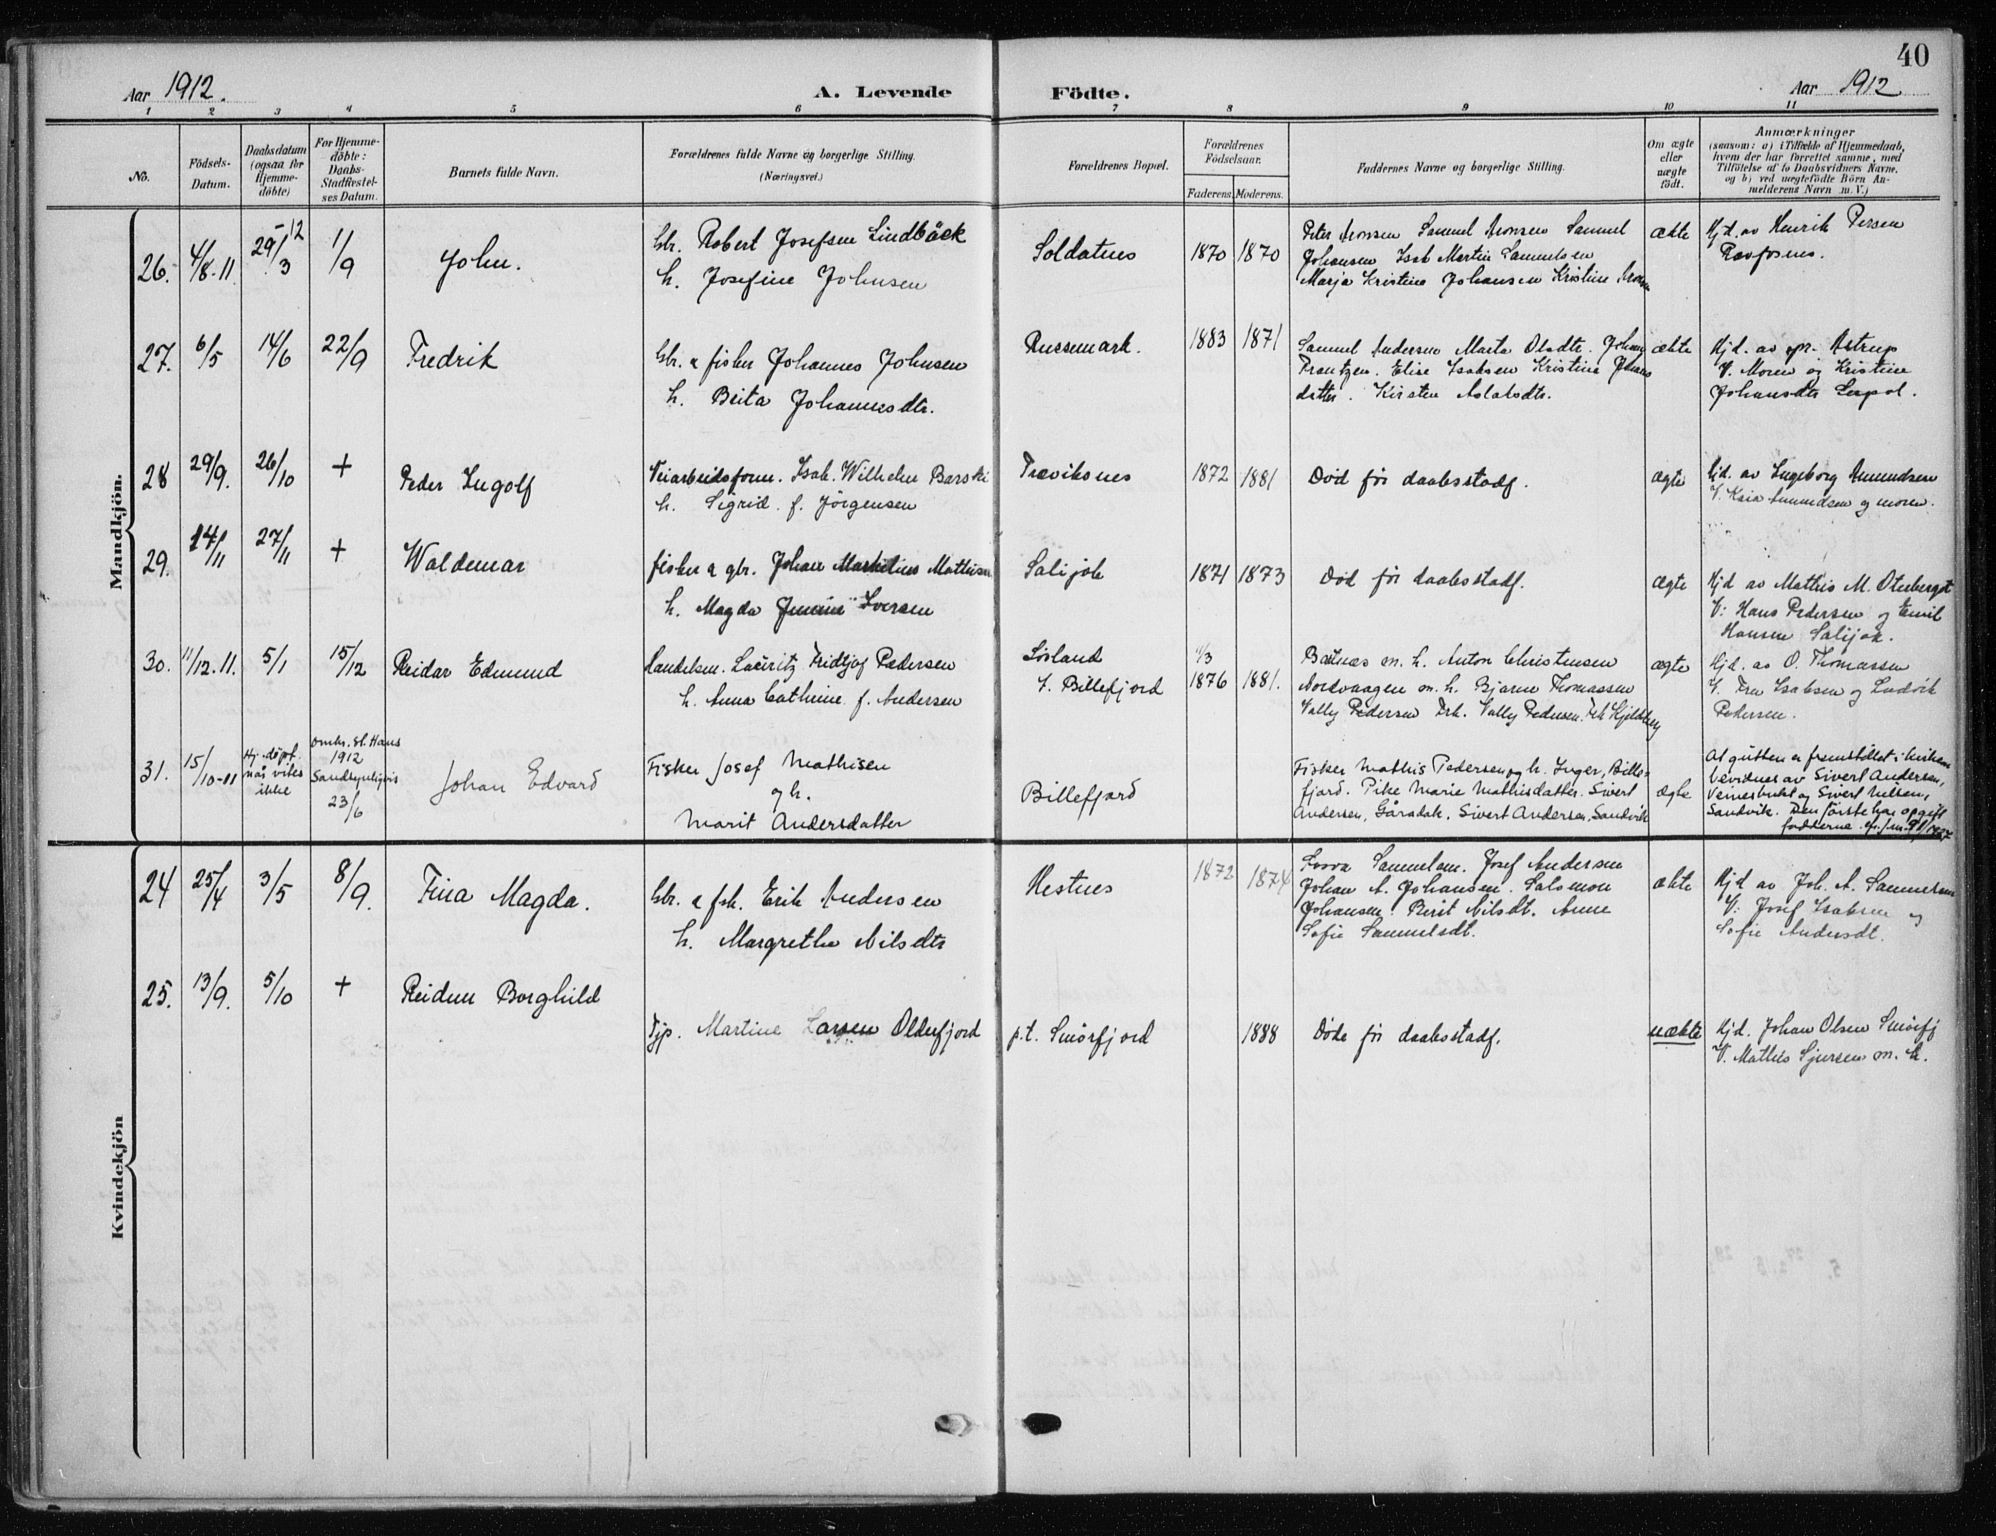 40
Aar 1912.
A. Levende Födte.
Aar 1912
1 2 3 4 5 6 7 8 9 10 11
No.
Födsels-Datum.
Daabsdatum (ogsaa for Hjemme-döbte)
For Hjemme-döbte: Daabs-Stadfæstel-ses Datum.
Barnets fulde Navn.
Forældrenes fulde Navne og borgerlige Stilling.
(Næringsvei.)
Forældrenes Bopæl.
Forældrenes Födselsaar.
Faderens. Moderens.
Faddernes Navne og borgerlige Stilling.
Om ægte eller uægte födt.
Anmærkninger
(saasom: a) i Tilfælde af Hjemmedaab,
hvem der har forrettet samme, med
Tilföielse af to Daabsvidners Navne.
og b) ved uægtefödte Börn An-
melderens Navn m. V.)
Mandkjön.
26. 4/8-11. 29/3-12 1/9 John.
Gbr. Robert Josefsen Lindbäck
h. Josefine Johnsen
Soldatnes 1870 1870
Peter Aronsen Samuel Aronsen Samuel
Johansen Isak Martin Samuelsen
Marja Kristine Johansen Kristine Aronsen
ækte
Hjd. av Henrik Persen
27. 6/5 14/6 22/9 Fredrik
Gbr. & fisker Johannes Johnsen
h. Brita Johannesdtr.
Russemark. 1883 1871
Samuel Andersen Marta Olsdtr. Johan
Frantzen. Elise Isaksen Kristine
datter. Kirsten Aslaksdtr.
ækte
Hjd. av spr. Astrup
V. Moren og Kristine
Johansdtr
28 29/9. 26/10 + Peder Ingolf
Veiarbeidsform. Isak Wilhelm Barski
h. Sigrid f. Jørgensen
Træviknes 1872 1881
Død før daabsstadf.
ægte
Hjd. av Ingeborg Amundsen
V. Kaia Amundsen og moren.
29. 14/11 27/11 + Waldemar
fisker & gbr. Johan Markelius Mathisen
h. Magda Iversen
Salijok 1871 1873
Død før daabsstadf.
ægte
Hjd av Mathis M.
V: Hans Pedersen og Emil
Hansen Salijok.
30. 11/12.11. 5/1 15/12 Reidar Edmund
Handelsm. Lauritz Fridtjof Pedersen
h. Anna Cathrine f. Andersen
Sørland
i. Billefjord
1876 1881.
m. h. Anton Christensen
Nordvaagen m. h. Bjarne Thomassen
Vally Pedersen Frk. Vally Pedersen. Frk Kjeldsberg
ægte
Hjd. av O. Thomassen
V. Fru Isaksen og Ludvik
Pedersen.
31. 15/10-11 Hj.døpt. naar vites ikke
omkr. St. Hans
1912
Sandsynligvis
23/6
Johan Edvard
Fisker Josef Mathisen
og h.
Marit Andersdatter
Billefjord
Fisker Mathis Pedersen og h. Inger, Bille-
fjord. Pike Marie Mathisdatter. Sivert
Andersen, Gåradak. Sivert Andersen, Sandvik
ægte
At gutten er fremstillet i kirken
bevidnes av Sivert Andersen,
Veinesbukt og Sivert Nilsen,
Sandvik. Den første har opgift
fadderne.
Kvindekjön
24 25/4 3/5 8/9. Tina Magda.
Gbr. & fsk. Erik Andersen
h. Margrethe Nilsdtr
Hestnes 1872 1874
Josef Andersen
Johan A. Johansen. Salomon
Johansen. Berit Nilsdt. Anne
Sofie Samuelsdt.
ækte
Hjd av Joh. A. Samuelsen
V: Josef Isaksen og
Sofie Andersdt.
25. 13/9. 5/10 + Reidun Borghild
Tjp. Martine Larsen Olderfjord
p.t. Smørfjord 1888
Døde før daabsstadf.
uækte
Hjd. Johan Olsen Smörfj
V. Mathis Sjursen m. h.